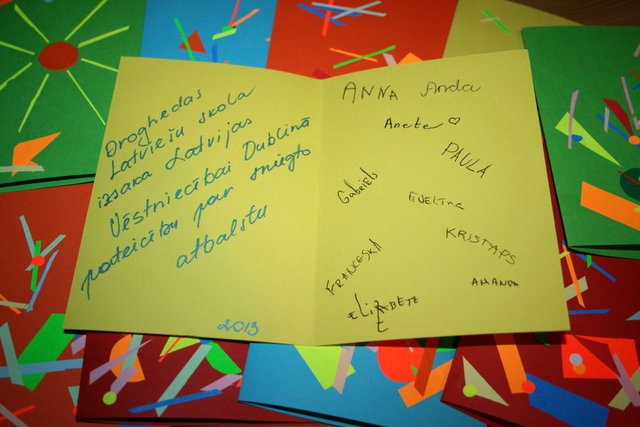 Droghedas
Latviešu skola
izsaka Latvijas
Vēstniecībai Dublinā
pateicību par sniegto
atbalstu
2013
ANNA Anda
Anete ♡
PAULA
Gabriels
EVELINA
KRISTAPS
FRANCESKA
AMANDA
ELIZABETE